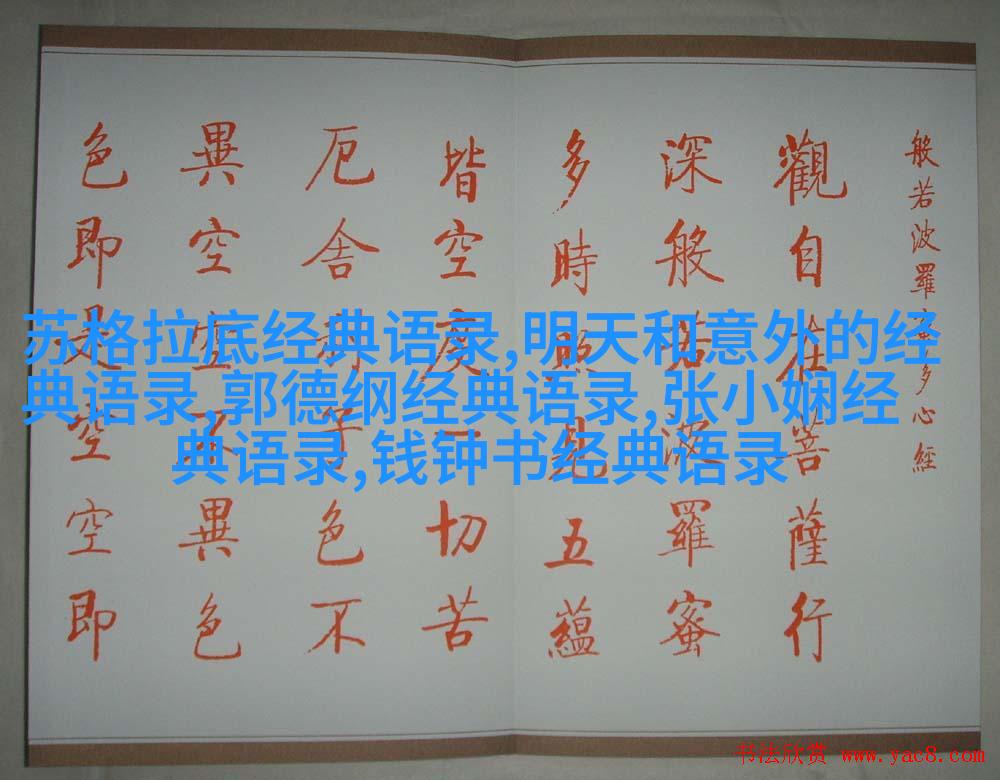 般若波羅蜜多心經
觀自在菩薩行
深般若波羅蜜
多時照見五蘊
皆空度一切苦
厄舍利子色不
異空空不異色
色即是空空即
苏格拉底经典语录,明天和意外的经
典语录,郭德纲经典语录,张小娴经
典语录,钱钟书经典语录
书法欣赏 www.yac8.com